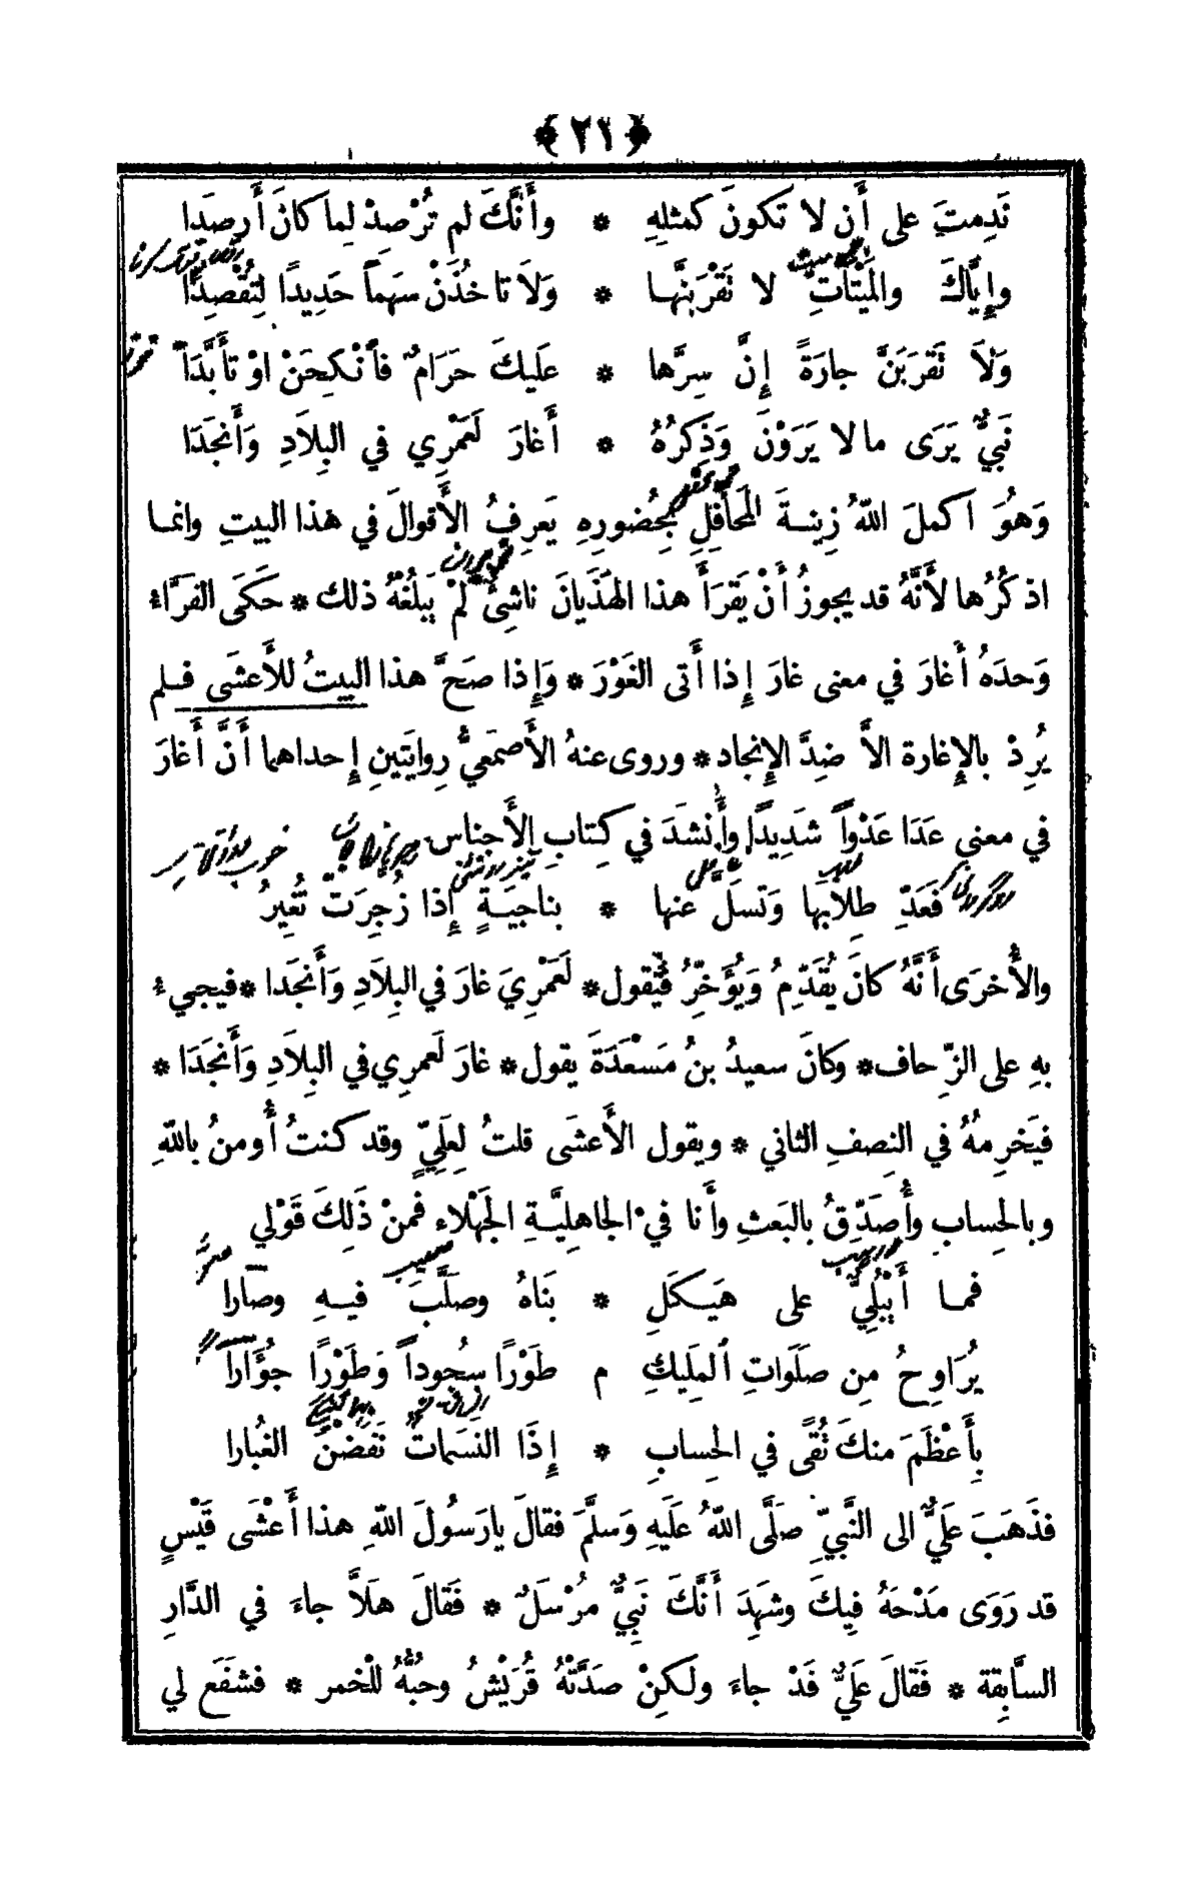 ﴿٢١﴾
نَدِمتَ على أَن لا تكونَ كمثلِهِ * وأَنَّكَ لم تُرْصِدْ لِما كانَ أَرصَدا
وإِيَّاكَ والمَيْتاتِ لا تَقْرَبَنَّهـا * وَلَا تاخُذَنْ سَهماً حَدِيدًا لِتُقْصِدًا
وَلَا تَقرَبَنَّ جارَةً إِنَّ سِرَّها * عَلَيكَ حَرَامٌ فأَنْكِحَنْ اوْ تأَبَّدَا
نَبِيٌّ يَرَى مالا يَرَوْنَ وَذِكرُهُ * أَغارَ لَعَمْرِي في البِلَادِ وَأَنجَدَا
وَهوَ اكملَ اللهُ زِينـةَ المَحافِلِ بِحُضورِهِ يَعرِفُ الأَقوالَ في هذا البيتِ وانمـا
اذكُرُها لأَنَّهُ قد يجوزُ أَنْ يَقرَأَ هذا الهَذَيانَ ناشِئٌ لمْ يَبلُغْهُ ذلك * حَكَى الفرَّاءُ
وَحدَهُ أَغارَ في معنى غارَ إِذا أَتى الغَوْرَ * وَإِذا صَحَّ هذا البيتُ للأَعشَى فـلم
يُرِدْ بالإِغارة الاَّ ضِدَّ الإِنجاد * وروى عنهُ الأَصمَعيُّ رِوايَتَينِ إِحداهما أَنَّ أَغارَ
في معنى عَدَا عَدْواً شَدِيدًا وأَنشدَ في كِتابِ الأَجناس
فَعَدِّ طِلَابَها وَتَسلَّ عنها * بناجيَـةٍ إِذا زُجِرَتْ تُغِيرُ
والأُخرَى أَنَّهُ كانَ يُقَدِّمُ وَيُؤَخِّرُ فيقول * لَعَمْرِيَ غارَ في البِلَادِ وَأَنجَدَا * فيجيءُ
بهِ على الزِّحاف * وكانَ سعيدُ بنُ مَسْعَدَةَ يقول * غارَ لَعمرِي في البِلَادِ وَأَنجَدَا *
فيَخرِمُهُ في النِصفِ الثاني * ويقول الأَعشَى قلتُ لِعَلِيٍّ وقد كنتُ أُومنُ باللهِ
وبالحِسابِ وأُصَدِّقُ بالبَعثِ وأَنا في الجاهِلِيَّـةِ الجَهْلاءِ فمنْ ذَلِكَ قَوْلي
فمـا أَيْبُلِيٌّ على هَيـكَلِ * بَنَاهُ وصلَّبَ فيـهِ وصَارا
يُرَاوِحُ مِن صَلَوَاتِ المَلِيكِ م طَوْرًا سجُوداً وَطَوْرًا جُؤَارا
بِأَعْظَمَ منكَ تُقًى في الحِسابِ * إِذَا النسَماتُ نَفَضْنَ الغُبارا
فذَهَبَ عَلَيٌّ الى النَّبيِّ صَلَّى اللهُ عَلَيهِ وَسلمَّ فقالَ يارَسُولَ اللهِ هذا أَعْشَى قَيْسٍ
قد رَوَى مَدْحَهُ فِيكَ وشهِدَ أَنَّكَ نَبِيٌّ مُرْسَلٌ * فَقالَ هَلاَّ جاءَ في الدَّارِ
السَّابِقة * فَقالَ عَلَيٌّ قَدْ جاءَ ولكِنْ صَدَّتْهُ قُرَيْشُ وحُبُّهُ للْخمر * فشفَع لي